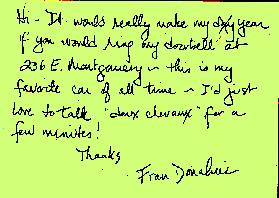 Hi - It would really make my day year
if you would ring my doorbell at
236 E. Montgomery - this is my
favorite car of all time - I'd just
love to talk "deux chevaux" for a
few minutes!
Thanks
Fran Donahue